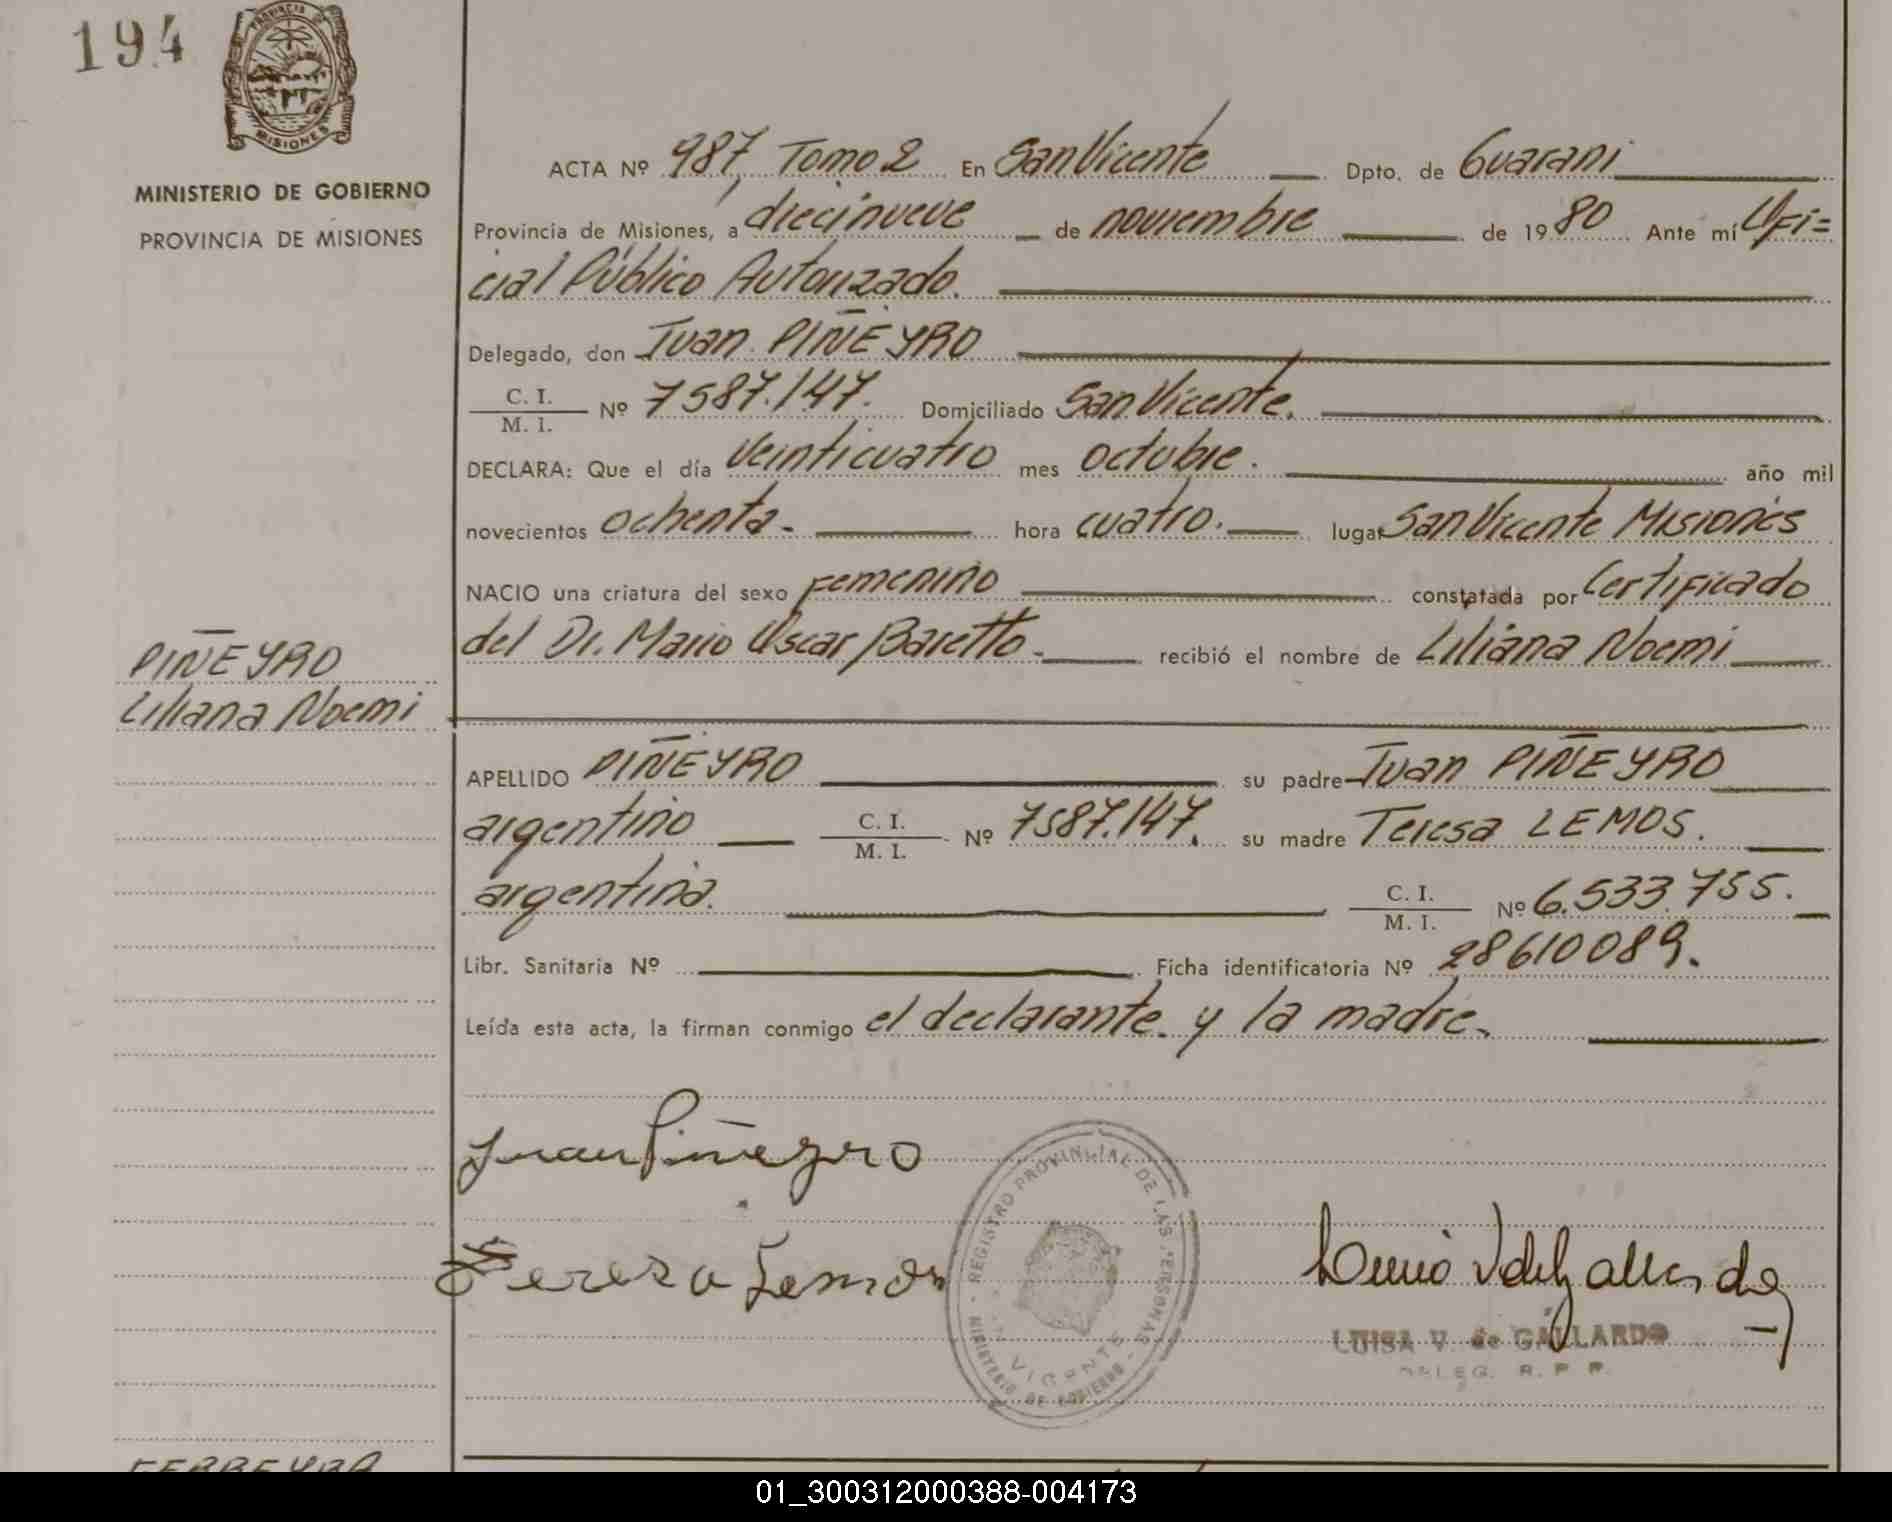 194
PROVINCIA DE
MISIONES
MINISTERIO DE GOBIERNO
PROVINCIA DE MISIONES
ACTA Nº 987, Tomo 2 En San Vicente Dpto. de Guarani
Provincia de Misiones, a diecinueve de noviembre de 1980 Ante mí Ofi=
cial Público Autorizado.
Delegado, don Juan PIÑEYRO
C. I. / M. I. Nº 7587.147. Domiciliado San Vicente.
DECLARA: Que el día veinticuatro mes octubre. año mil
novecientos ochenta. hora cuatro. lugar San Vicente Misiones
NACIO una criatura del sexo femenino constatada por Certificado
del Dr. Mario Oscar Baretto. recibió el nombre de Liliana Noemi
PIÑEYRO
Liliana Noemi
APELLIDO PIÑEYRO su padre Juan PIÑEYRO
argentino C. I. / M. I. Nº 7587.147. su madre Teresa LEMOS.
argentina. C. I. / M. I. Nº 6.533.755.
Libr. Sanitaria Nº Ficha identificatoria Nº 28610089.
Leída esta acta, la firman conmigo el declarante y la madre.
Juan Piñeyro
Teresa Lemos
REGISTRO PROVINCIAL DE LAS PERSONAS
MINISTERIO DE GOBIERNO
VICENTE
LUISA V. de GALLARDO
DELEG. R. P. P.
FERREYRA
01_300312000388-004173